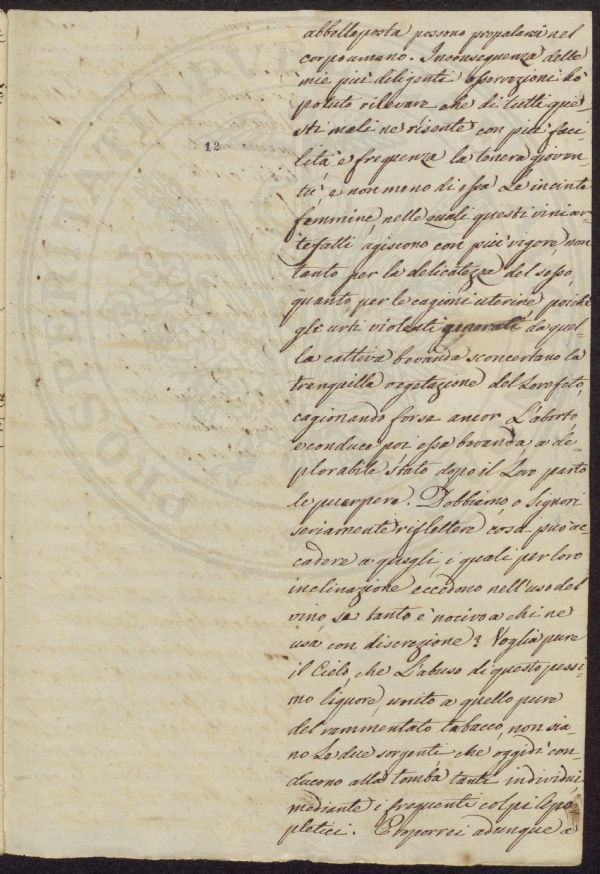 abbelloposta possono propalarsi nel
corpo umano. Inconseguenza delle
mie più deligenti osservazioni hò
potuto rilevare che di tutti que-
sti mali ne risente con più faci
lità e frequenza la tenera gioven-
tù, e non meno di essa Le incinte
femmine, nelle quali questi vini ar-
tefatti agiscono con più vigore, non
tanto per la delicatezza del sesso,
quanto, per le cagioni uterine poichè
gli urti violenti generati da quel-
la cattiva bevanda sconcertano la
tranquilla vegetazione del Loro feto,
cagionando forse ancor L'aborto,
e conduce poi essa bevanda a de-
plorabile stato dopo il Loro parto
le puerpere. Dobbiamo, o Signori
seriamente riflettere cosa può ac-
cadere a quegli, i quali per loro
inclinazione eccedono nell'uso del
vino, se tanto è nocivo a chi ne
usa con discrezione? Voglia pure
il Cielo, che L'abuso di questo pessi-
mo liquore, unito a quello pure
del rammentato tabacco, non sia-
no Le due sorgenti che oggidì con-
ducono alla tomba tanti individui,
mediante i frequenti colpi Apo-
pletici. Esporrei adunque a
12
PROSPERITATI